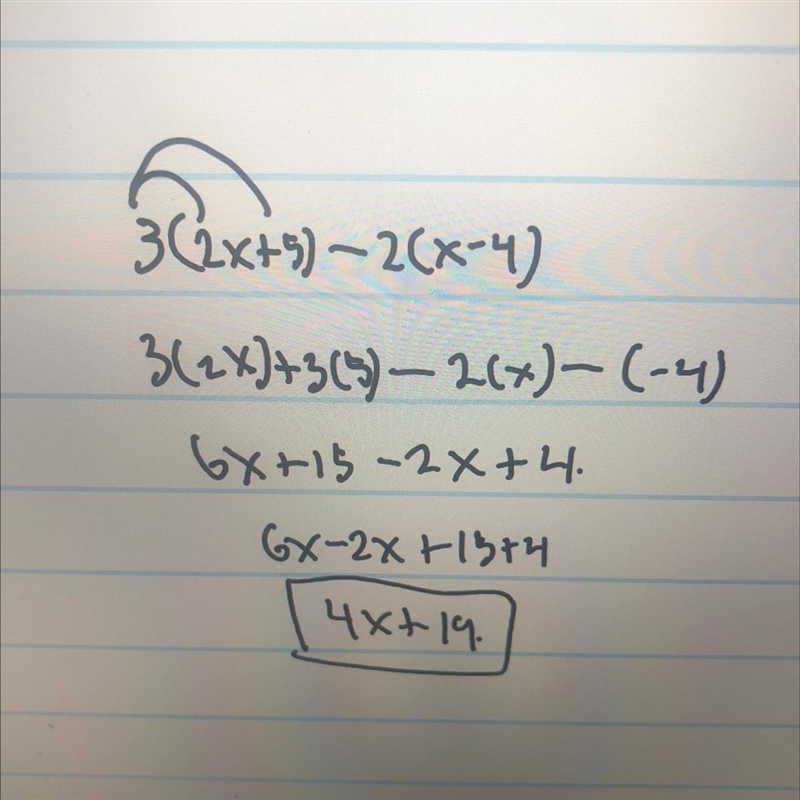 3(2x+5)-2(x-4)
3(2x)+3(5)-2(x)-(-4)
6x+15-2x+4.
6x-2x+15+4
4x+19.